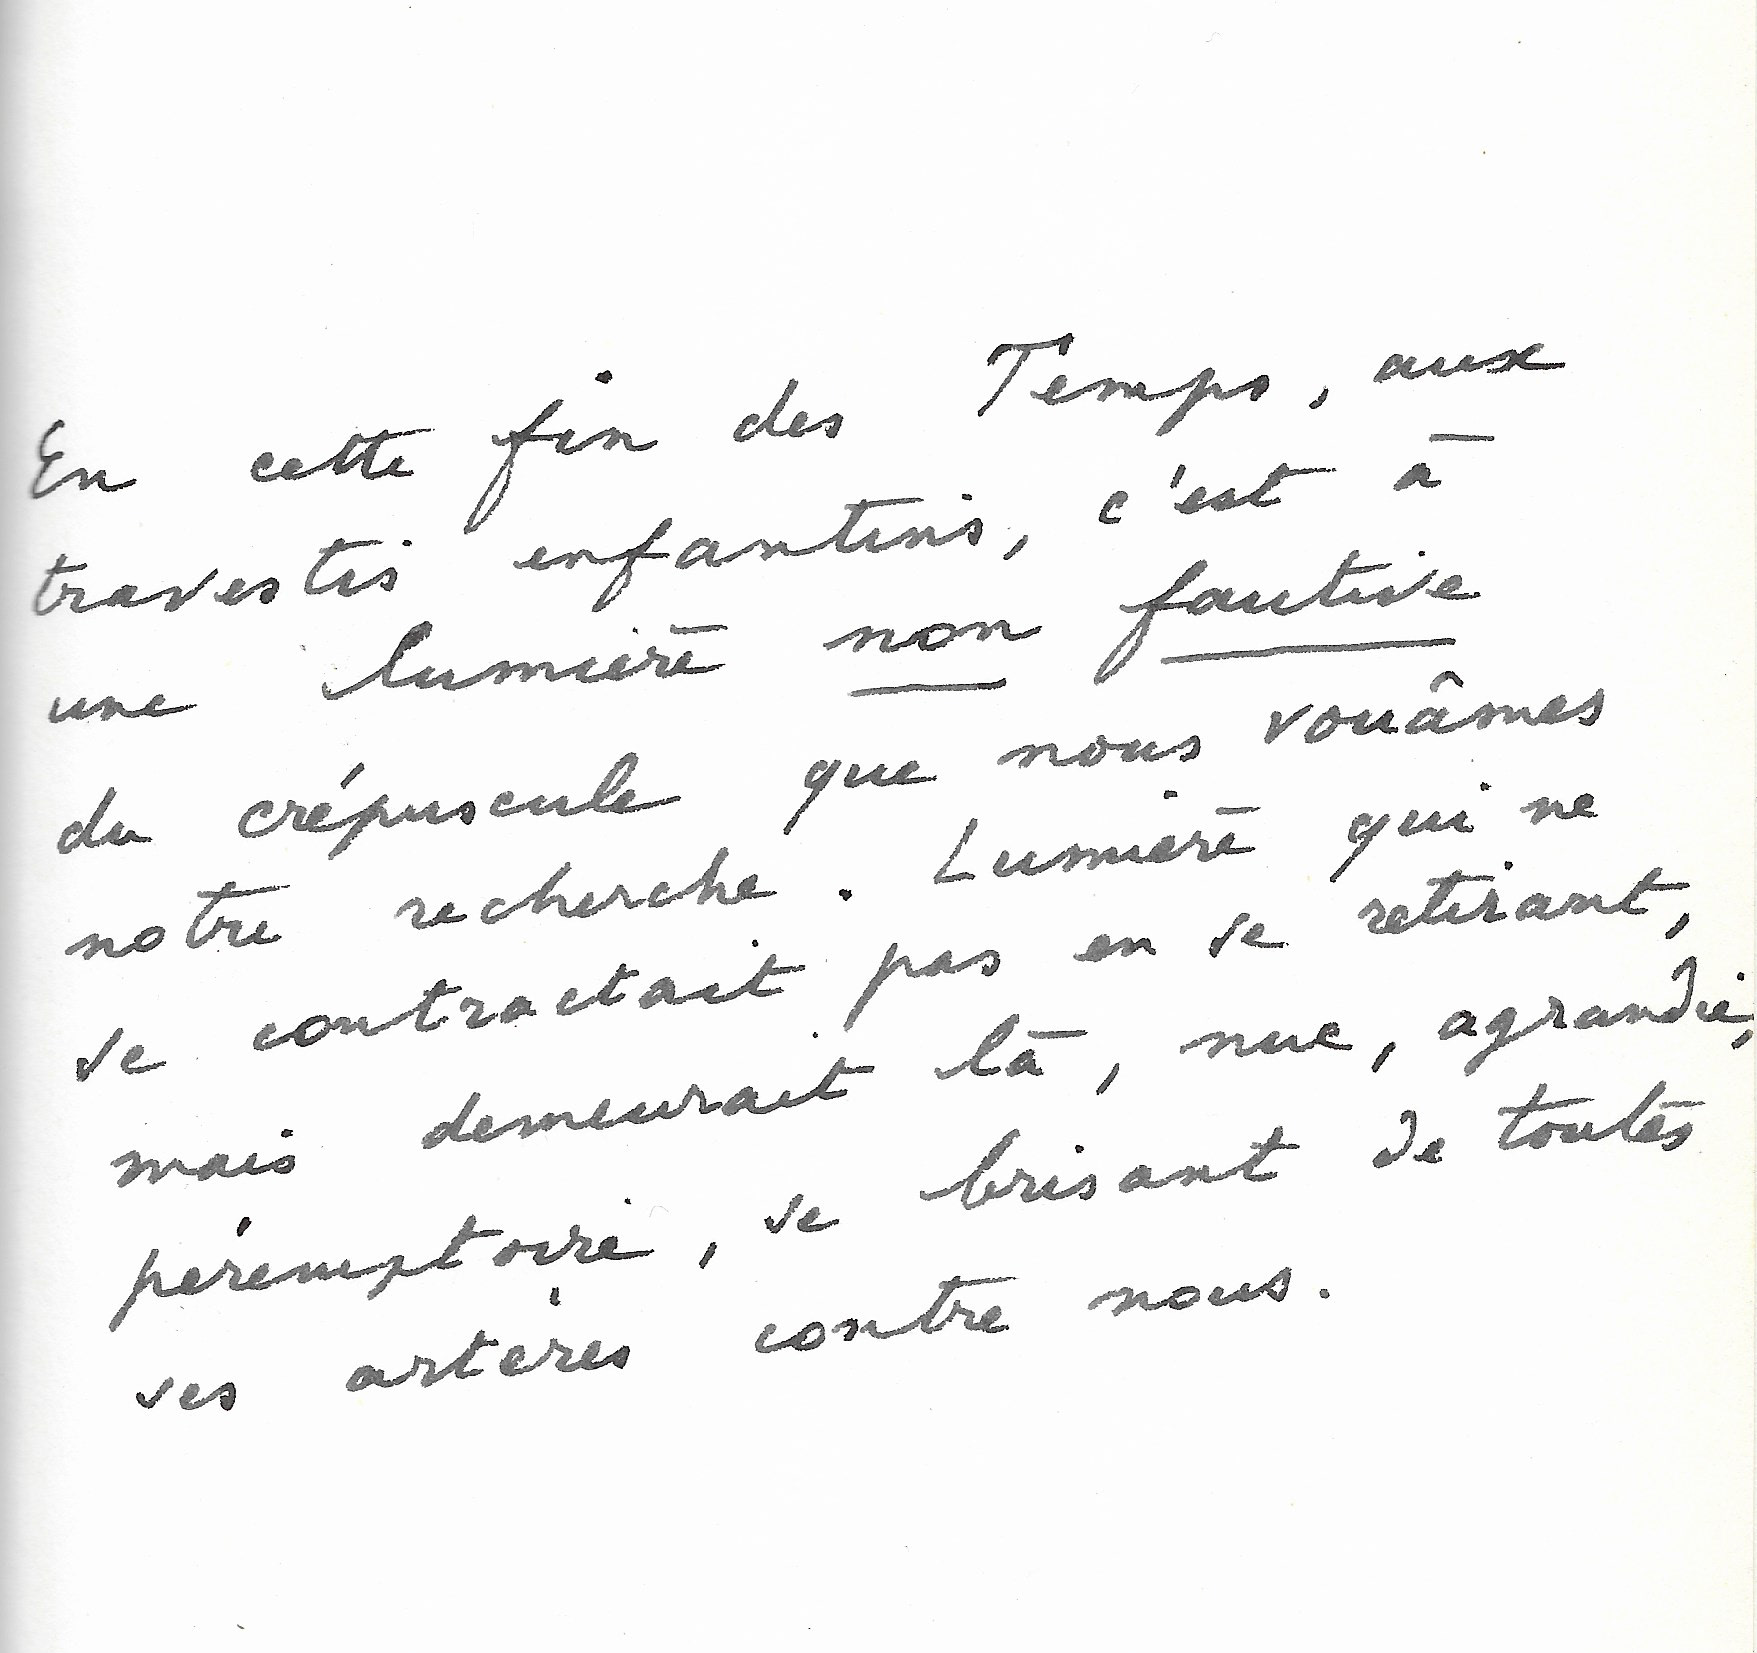 En cette fin des Temps, aux
travestis enfantins, c'est à
une lumière non fautive
du crépuscule que nous vouâmes
notre recherche. Lumière qui ne
se contractait pas en se retirant,
mais demeurait là, nue, agrandie,
péremptoire, se brisant de toutes
ses artères contre nous.